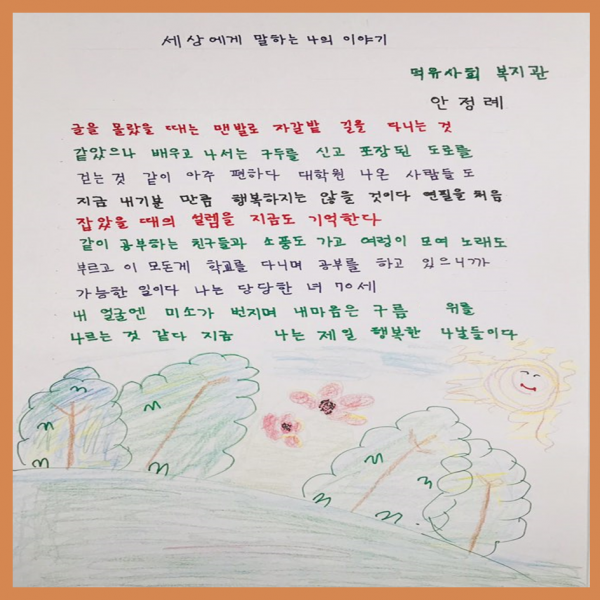 세상에게 말하는 나의 이야기
먹유사회 복지관
안정례
글을 몰랐을 때는 맨발로 자갈밭 길을 다니는 것
같았으나 배우고 나서는 구두를 신고 포장된 도로를
걷는 것 같이 아주 편하다 대학원 나온 사람들 도
지금 내기분 만큼 행복하지는 않을 것이다 연필을 처음
잡았을 때의 설렘을 지금도 기억한다
같이 공부하는 친구들과 소풍도 가고 여럿이 모여 노래도
부르고 이 모든게 학교를 다니며 공부를 하고 있으니까
가능한 일이다 나는 당당한 녀 70세
내 얼굴엔 미소가 번지며 내마음은 구름 위를
나르는 것 같다 지금 나는 제일 행복한 나날들이다